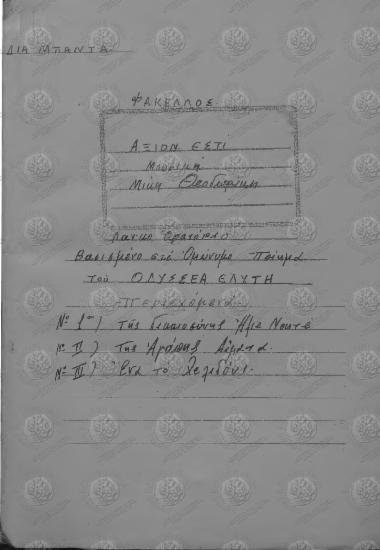 ΔΙΑ ΜΠΑΝΤΑ
ΦΑΚΕΛΛΟΣ
ΑΞΙΟΝ ΕΣΤΙ
Μουσική
Μίκη Θεοδωράκη
Λαϊκό Ορατόριο
Βασισμένο στό Ομώνυμο Ποίημα
τού ΟΔΥΣΣΕΑ ΕΛΥΤΗ
Περιεχόμενα
Νο Ι) Τής δικαιοσύνης Ήλιε Νοητέ
Νο ΙΙ) Της Αγάπης Αίματα
Νο ΙΙΙ) Ένα το Χελιδόνι